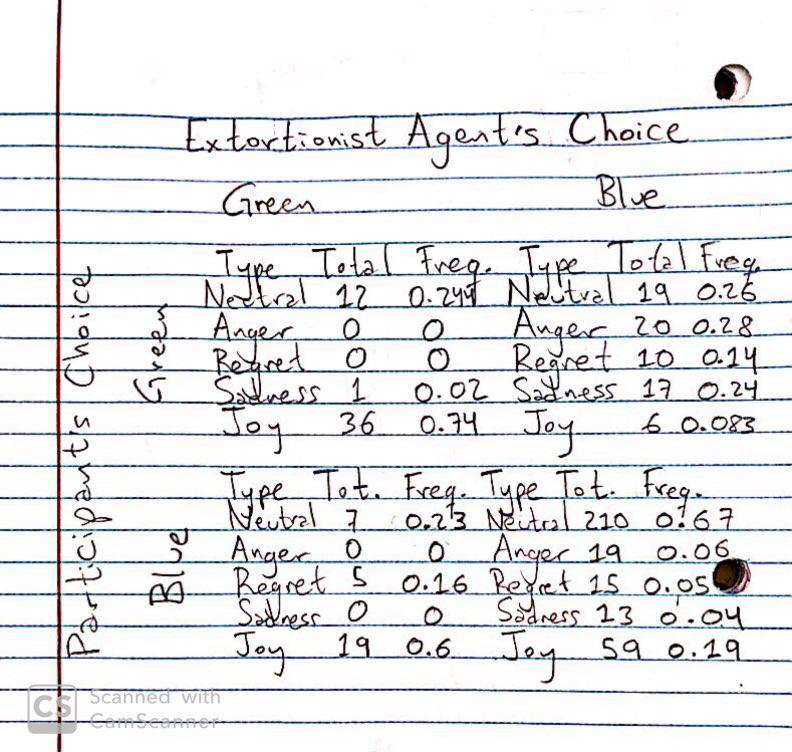 Extortionist Agent's Choice
Green Blue
Participant's Choice
Green
Type Total Freq. Type Total Freq.
Neutral 12 0.244 Neutral 19 0.26
Anger 0 0 Anger 20 0.28
Regret 0 0 Regret 10 0.14
Sadness 1 0.02 Sadness 17 0.24
Joy 36 0.74 Joy 6 0.083
Blue
Type Tot. Freq. Type Tot. Freq.
Neutral 7 0.23 Neutral 210 0.67
Anger 0 0 Anger 19 0.06
Regret 5 0.16 Regret 15 0.05
Sadness 0 0 Sadness 13 0.04
Joy 19 0.6 Joy 59 0.19
CS Scanned with
CamScanner